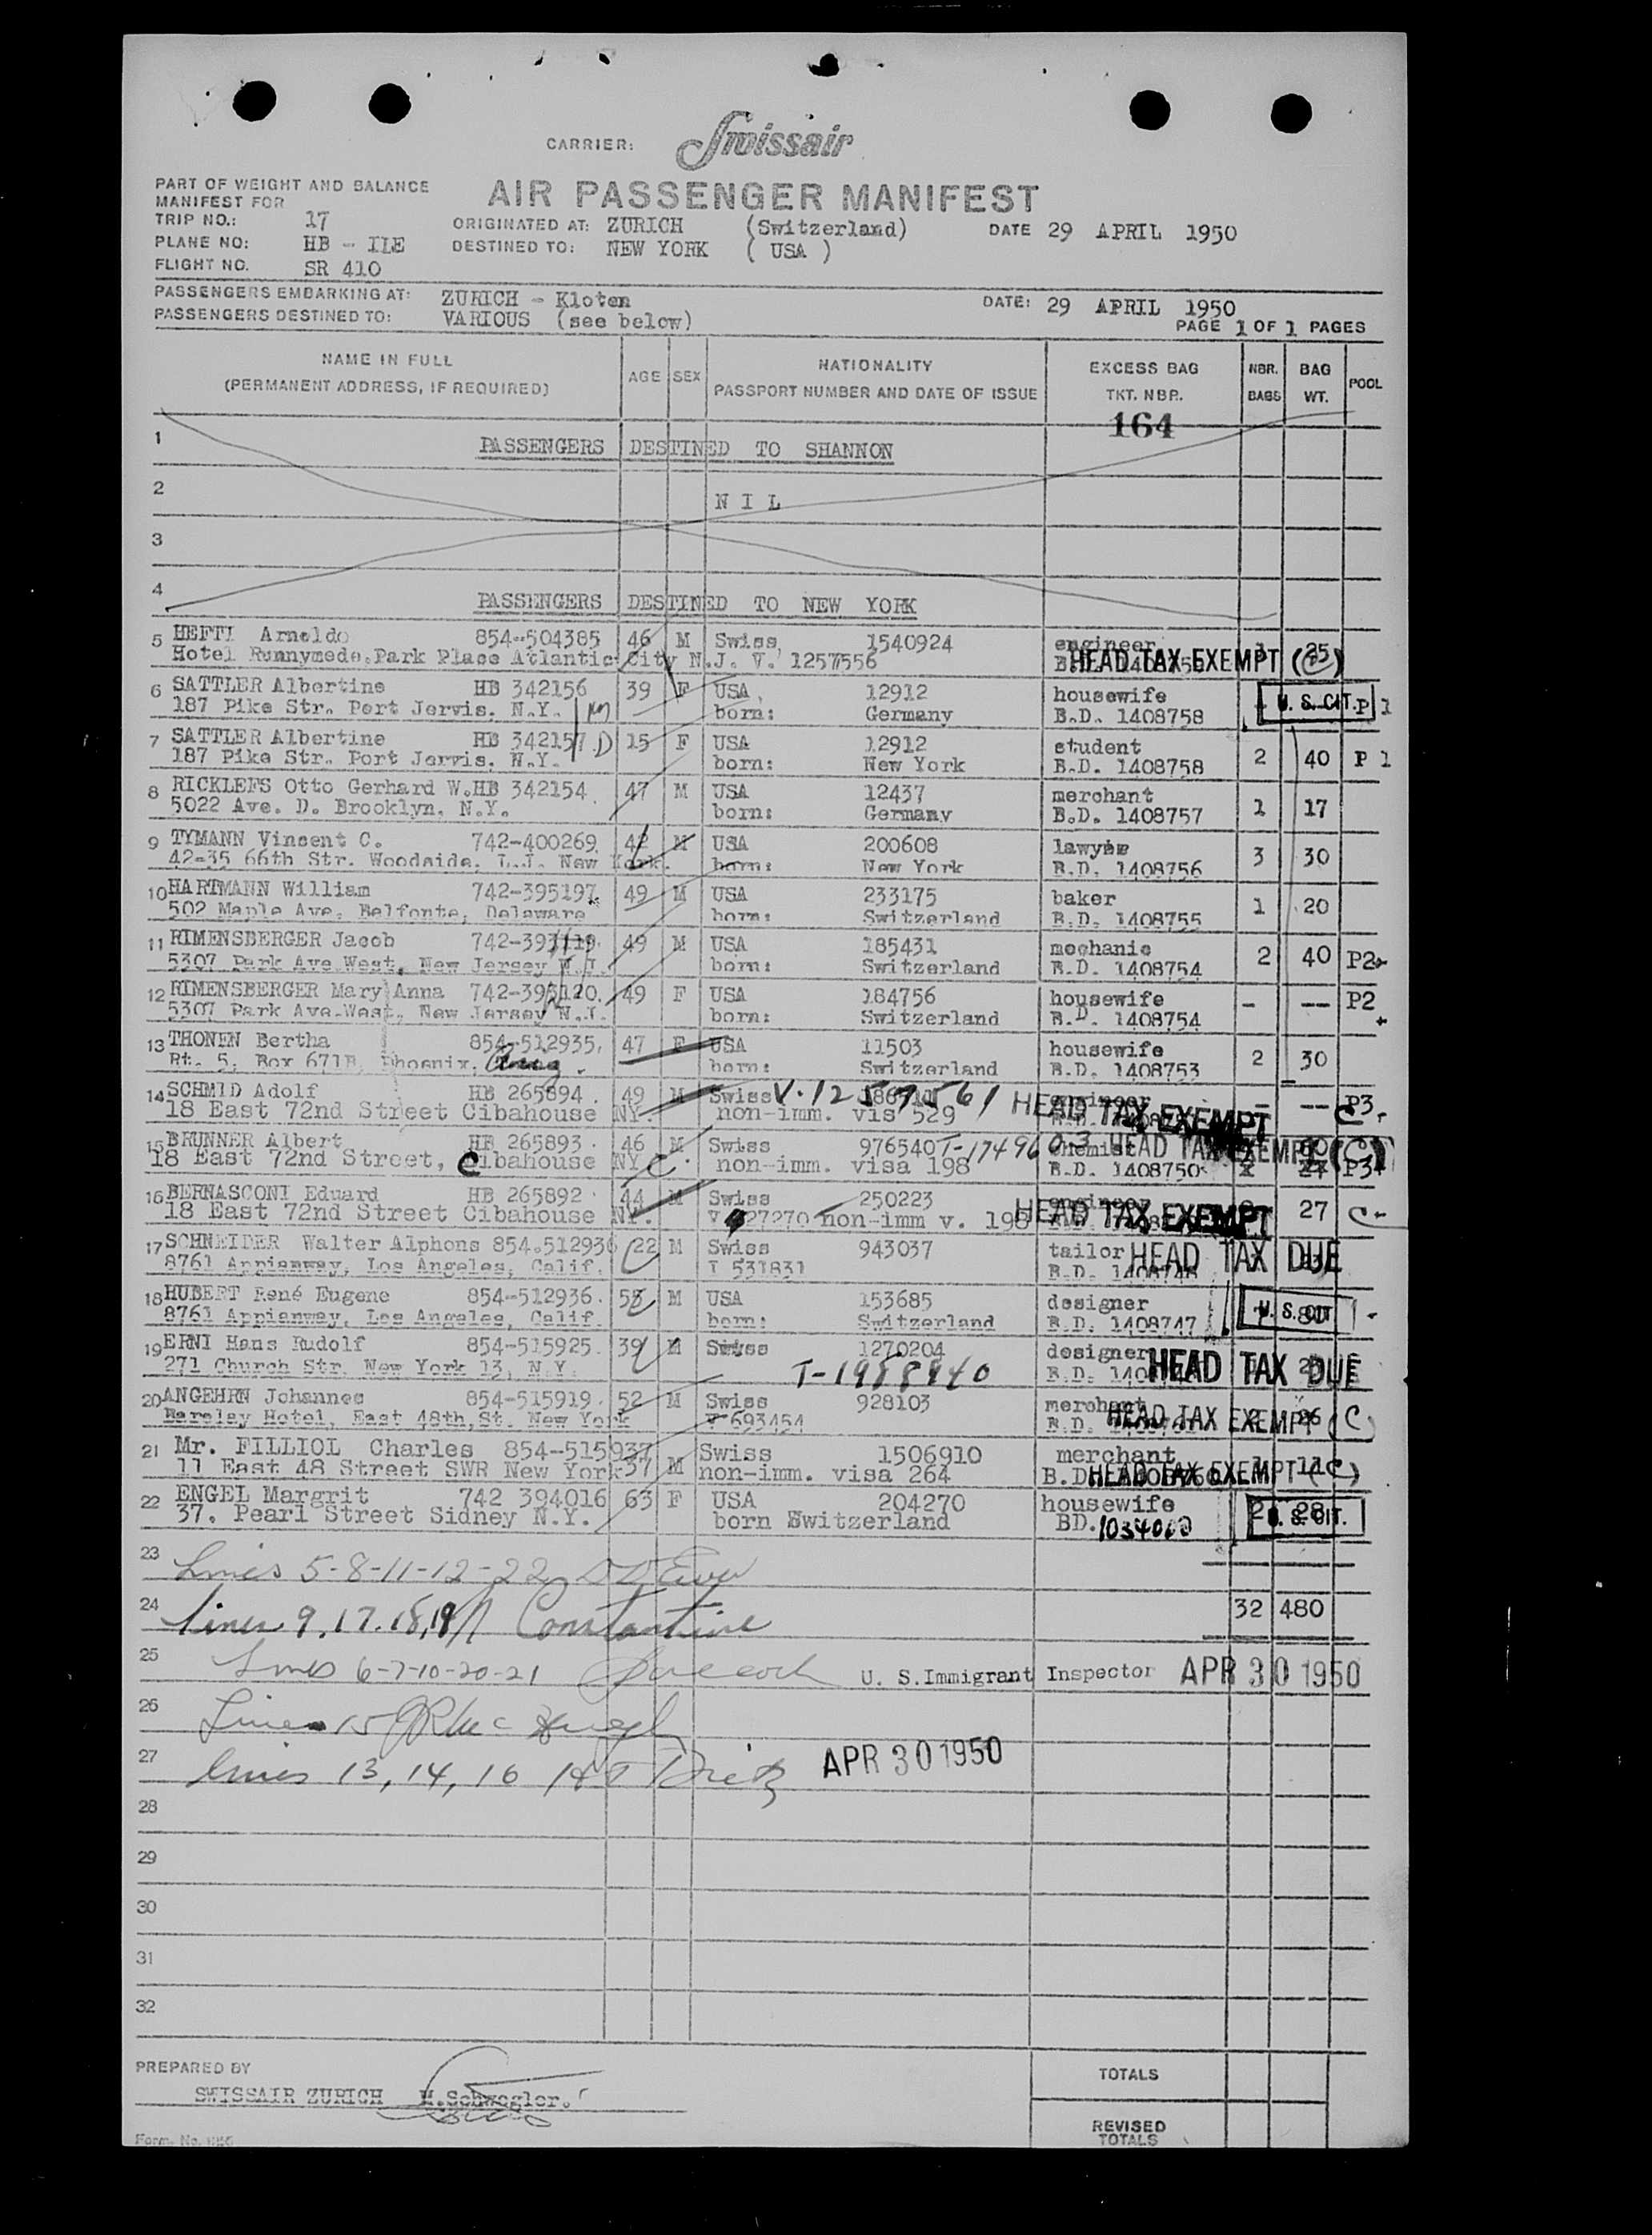 CARRIER: Swissair
AIR PASSENGER MANIFEST
PART OF WEIGHT AND BALANCE
MANIFEST FOR
TRIP NO.: 17 ORIGINATED AT: ZURICH (Switzerland) DATE 29 APRIL 1950
PLANE NO: HB - ILE DESTINED TO: NEW YORK ( USA )
FLIGHT NO. SR 410
PASSENGERS EMBARKING AT: ZURICH - Kloten DATE: 29 APRIL 1950
PASSENGERS DESTINED TO: VARIOUS (see below)
PAGE 1 OF 1 PAGES
NAME IN FULL AGE SEX NATIONALITY EXCESS BAG NBR. BAG POOL
(PERMANENT ADDRESS, IF REQUIRED) PASSPORT NUMBER AND DATE OF ISSUE TKT. NBR. BAGS WT.
164
1 PASSENGERS DESTINED TO SHANNON
2 N I L
3
4 PASSENGERS DESTINED TO NEW YORK
5 HEFTI Arnoldo 854-504385 46 M Swiss 1540924 engineer 25
Hotel Runnymede.Park Place Atlantic City N.J. V. 1257556 HEAD TAX EXEMPT (C)
6 SATTLER Albertine HB 342156 39 F USA 12912 housewife U. S. CIT. P 1
187 Pike Str. Port Jervis. N.Y. born: Germany B.D. 1408758
7 SATTLER Albertine HB 342157 D 15 F USA 12912 student 2 40 P 1
187 Pike Str. Port Jervis. N.Y. born: New York B.D. 1408758
8 RICKLEFS Otto Gerhard W.HB 342154 47 M USA 12437 merchant 1 17
5022 Ave. D. Brooklyn. N.Y. born: Germany B.D. 1408757
9 TYMANN Vincent C. 742-400269 42 M USA 200608 lawyer 3 30
42-35 66th Str. Woodside. L.I. New York. born: New York B.D. 1408756
10 HARTMANN William 742-395197 49 M USA 233175 baker 1 20
502 Maple Ave. Belfonte, Delaware born: Switzerland B.D. 1408755
11 RIMENSBERGER Jacob 49 M USA 185431 mechanic 2 40 P2
5307 Park Ave West, New Jersey N.J. born: Switzerland B.D. 1408754
12 RIMENSBERGER Mary Anna 49 F USA 184756 housewife - -- P2
5307 Park Ave.West, New Jersey N.J. born: Switzerland B.D. 1408754
13 THONEN Bertha 854-512935 47 F USA 11503 housewife 2 30
Rt. 5. Box 671B, Phoenix. Ariz. born: Switzerland B.D. 1408753
14 SCHMID Adolf HB 265894 49 M Swiss V.1257561 engineer - -- P3
18 East 72nd Street Cibahouse NY. non-imm. vis 529 HEAD TAX EXEMPT C
15 BRUNNER Albert HB 265893 46 M Swiss 976540 T-1749603 chemist HEAD TAX EXEMPT (C)
18 East 72nd Street, Cibahouse NY C non-imm. visa 198 B.D. 1408750 P3
16 BERNASCONI Eduard HB 265892 44 M Swiss 250223 engineer 27 C
18 East 72nd Street Cibahouse NY. non-imm v. 198 HEAD TAX EXEMPT
17 SCHNEIDER Walter Alphons 854.512936 22 M Swiss 943037 tailor HEAD TAX DUE
8761 Appianway, Los Angeles, Calif. I 531831 B.D. 1408748
18 HUBERT René Eugene 854-512936 55 M USA 153685 designer U. S. CIT
8761 Appianway, Los Angeles, Calif. born: Switzerland B.D. 1408747
19 ERNI Hans Rudolf 854-515925 39 M Swiss 1270204 designer HEAD TAX DUE
271 Church Str. New York 13, N.Y. T-1988940 B.D.
20 ANGEHRN Johannes 854-515919 52 M Swiss 928103 merchant 26
Barclay Hotel, East 48th,St. New York V 693454 B.D. HEAD TAX EXEMPT (C)
21 Mr. FILLIOL Charles 854-515937 37 M Swiss 1506910 merchant
11 East 48 Street SWR New York non-imm. visa 264 B.D. HEAD TAX EXEMPT (C)
22 ENGEL Margrit 742 394016 63 F USA 204270 housewife 2 28 U. S. CIT.
37. Pearl Street Sidney N.Y. born Switzerland BD.
23 Lines 5-8-11-12-22
24 Lines 9.17.18,19 Constantine 32 480
25 Lines 6-7-10-20-21 U. S.Immigrant Inspector APR 30 1950
26 Lines 15
27 Lines 13, 14, 16 APR 30 1950
28
29
30
31
32
PREPARED BY
SWISSAIR ZURICH H.Schwegler.
TOTALS
REVISED
TOTALS
Form. No.